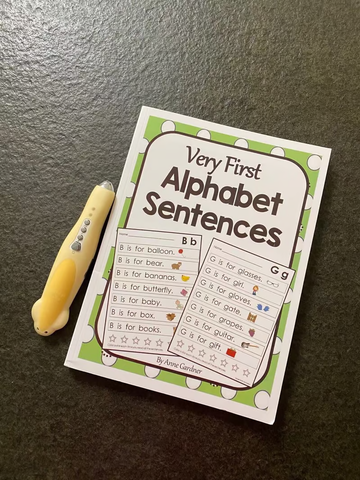 Very First
Alphabet
Sentences
B b
B is for balloon.
B is for bear.
B is for bananas.
B is for butterfly.
B is for baby.
B is for box.
B is for books.
G g
G is for glasses.
G is for girl.
G is for gloves.
G is for gate.
G is for grapes.
G is for guitar.
G is for gift.
By Anne Gardner